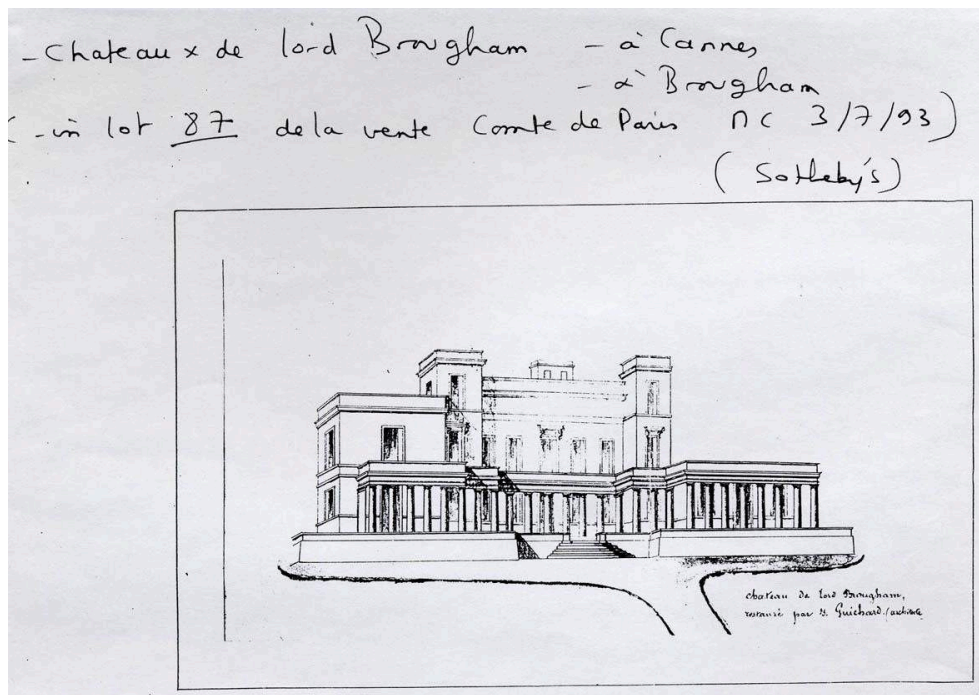 - Chateaux de lord Brougham - à Cannes
- à Brougham
(- in lot 87 de la vente Comte de Paris MC 3/7/93)
(Sotheby's)
chateau de lord Brougham,
restauré par Guichard (architecte